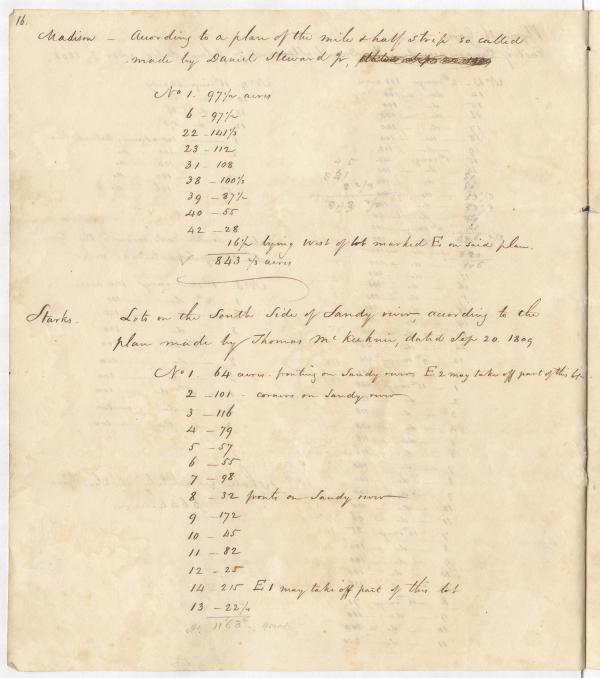 16.
Madison – According to a plan of the mile & half strip so called
made by Daniel Steward Jr,
No 1. 97 1/2 acres
6 – 97 1/2
22 – 141 1/2
23 – 112
31 – 108
38 – 100 1/2
39 – 87 1/2
40 – 55
42 – 28
16 1/2 lying West of lot marked E on said plan.
843 1/2 acres
Starks. Lots on the South Side of Sandy river, according to the
plan made by Thomas McKechnie, dated Sep 20. 1809
No 1 – 64 acres – fronting on Sandy river E 2 may take off part of this lot
2 – 101 – corners on Sandy river
3 – 116
4 – 79
5 – 57
6 – 55
7 – 98
8 – 32 fronts on Sandy river
9 – 172
10 – 45
11 – 82
12 – 25
14 – 215 E 1 may take off part of this lot
13 – 22 1/2
1163